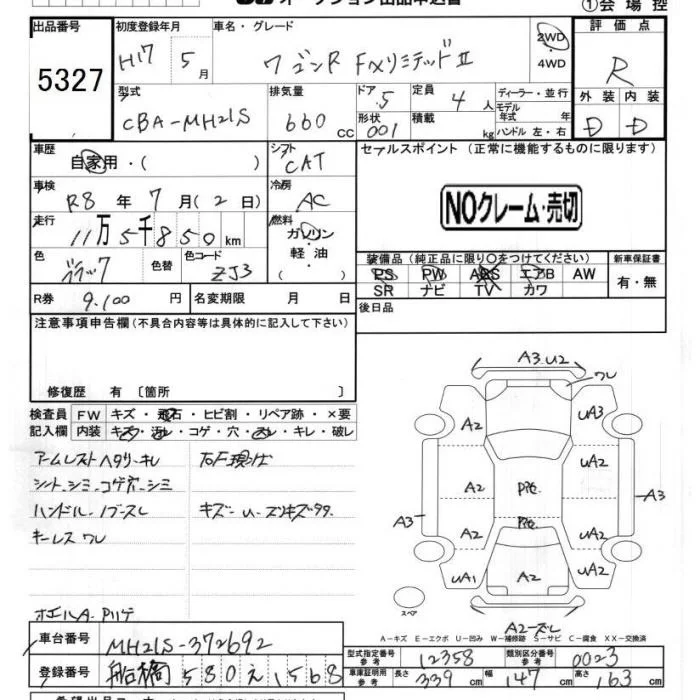 オークション出品申込書 ①会場控
出品番号 初度登録年月 車名・グレード 評価点
5327 H17 5月 ワゴンR FXリミテッドⅡ 2WD・4WD R
型式 排気量 ドア 5 定員 4人 ディーラー・並行 外装 内装
CBA-MH21S 660cc 形状 001 積載 kg モデル年式 年式 ハンドル 左・右 D D
車歴 自家用・( ) シフト CAT セールスポイント (正常に機能するものに限ります)
車検 R8年7月(2日) 冷房 AC
NOクレーム・売切
走行 11万5千850km 燃料 ガソリン
軽・油
( )
色 ブラック 色替 色コード ZJ3 装備品(純正品に限り○をつけてください) 新車保証書
PS PW ABS エアB AW 有・無
SR ナビ TV カワ
R券 9,100円 名変期限 月 日 後日品
注意事項申告欄(不具合内容等は具体的に記入して下さい)
修復歴 有〔箇所 〕
検査員 FW キズ・飛石・ヒビ割・リペア跡・×要
記入欄 内装 キズ・汚れ・コゲ・穴・スレ・キレ・破レ
アームレストヘタリ・キレ
シート・シミ・コゲ穴・シミ
ハンドル・ノブ-スレ キズ-U-
キーレス ワレ
A3.U2
ワレ
A2 UA3
A2 UA2
A3 A3
A2 UA2
UA1 A2 UA2
スペア
A-キズ E-エクボ U-凹み W-補修跡 S-サビ C-腐食 XX-交換済
車台番号 MH21S-372692 型式指定番号 参考 12358 類別区分番号 参考 0023
登録番号 船橋580え1568 車庫証明用 参考 長さ 339cm 幅 147cm 高さ 163cm